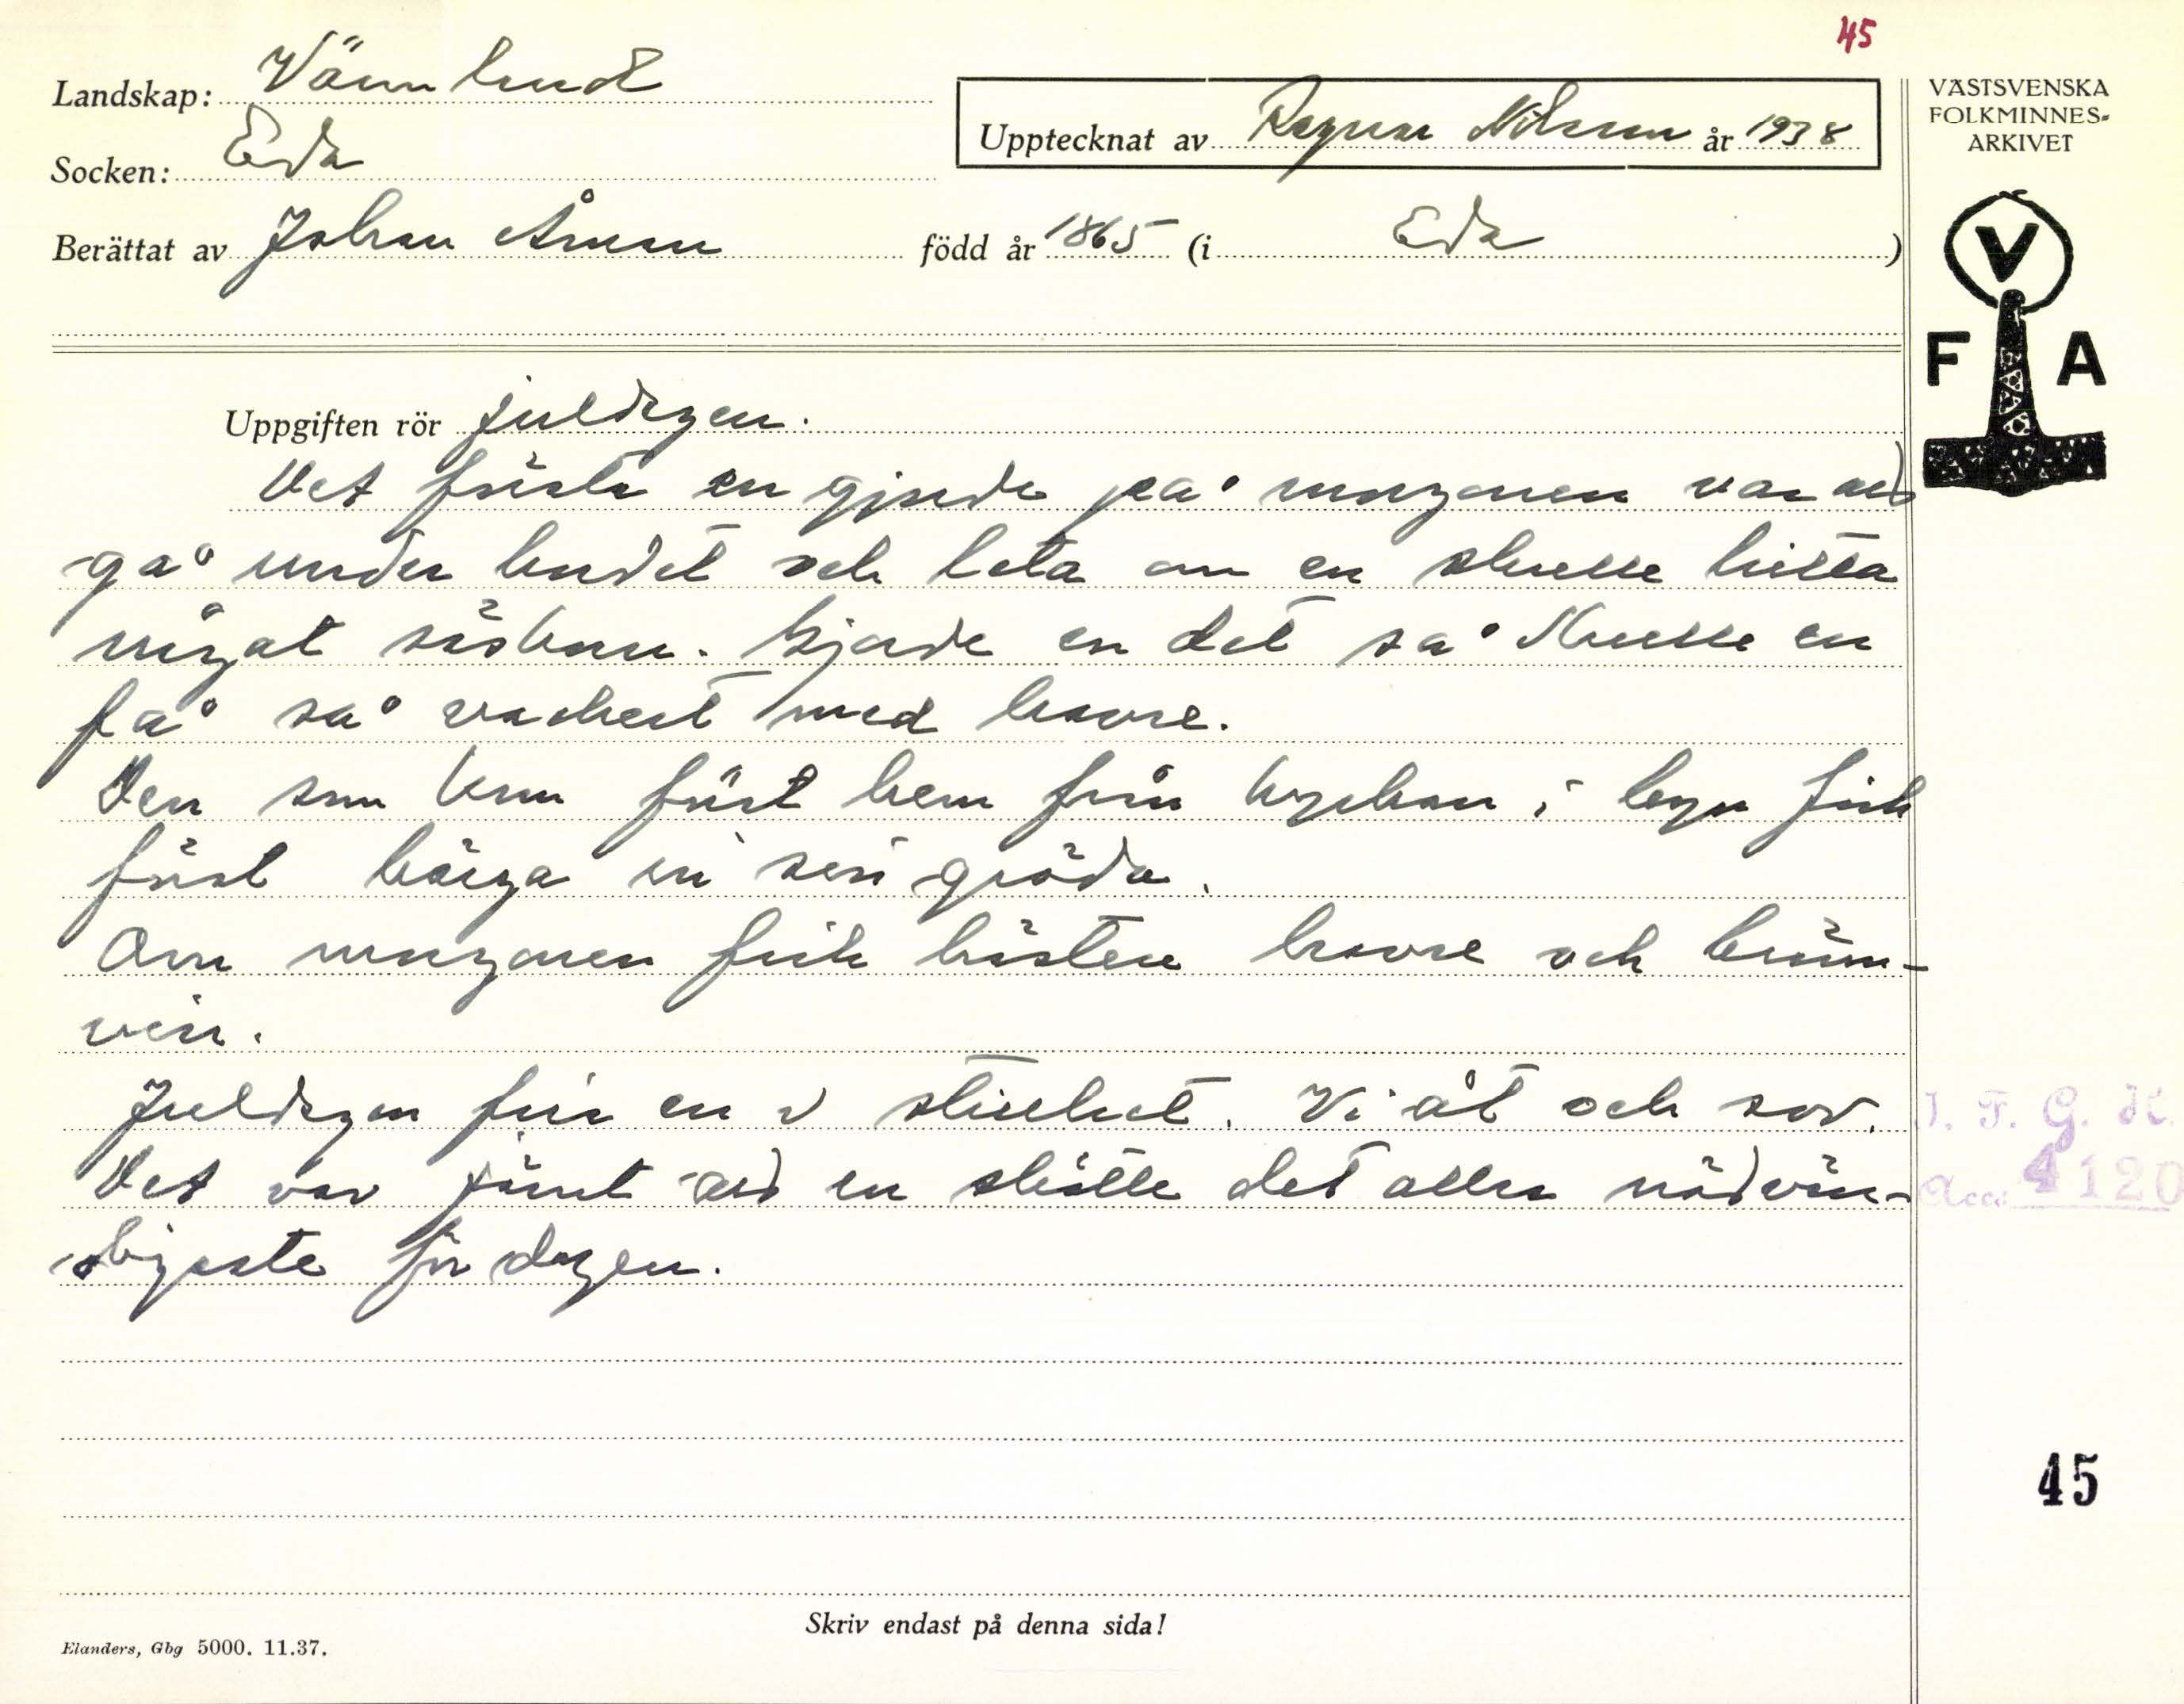 45
Landskap: Värmland
Upptecknat av Ragnar Nilsson år 1938
VÄSTSVENSKA
FOLKMINNES-
ARKIVET
Socken: Eda
Berättat av Johan Åman född år 1865 (i Eda)
V
F A
Uppgiften rör juldagen.
Det första en gjorde på morgonen var att
gå under bordet och leta om en skulle hitta
något sådkorn. Gjorde en det så skulle en
få så vackert med havre.
Den som kom först hem från kyrkan i byn fick
först bärga in sin gröda.
Om morgonen fick hästen havre och bränn-
vin.
Juldagen for en i stillhet. Vi åt och sov.
Det var jämt att en skötte det allra nödvän-
digaste för dagen.
I. F. G. H.
Acc: 4120
45
Skriv endast på denna sida!
Elanders, Gbg 5000. 11.37.